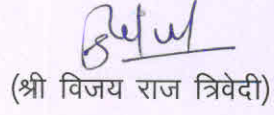 (श्री विजय राज त्रिवेदी)